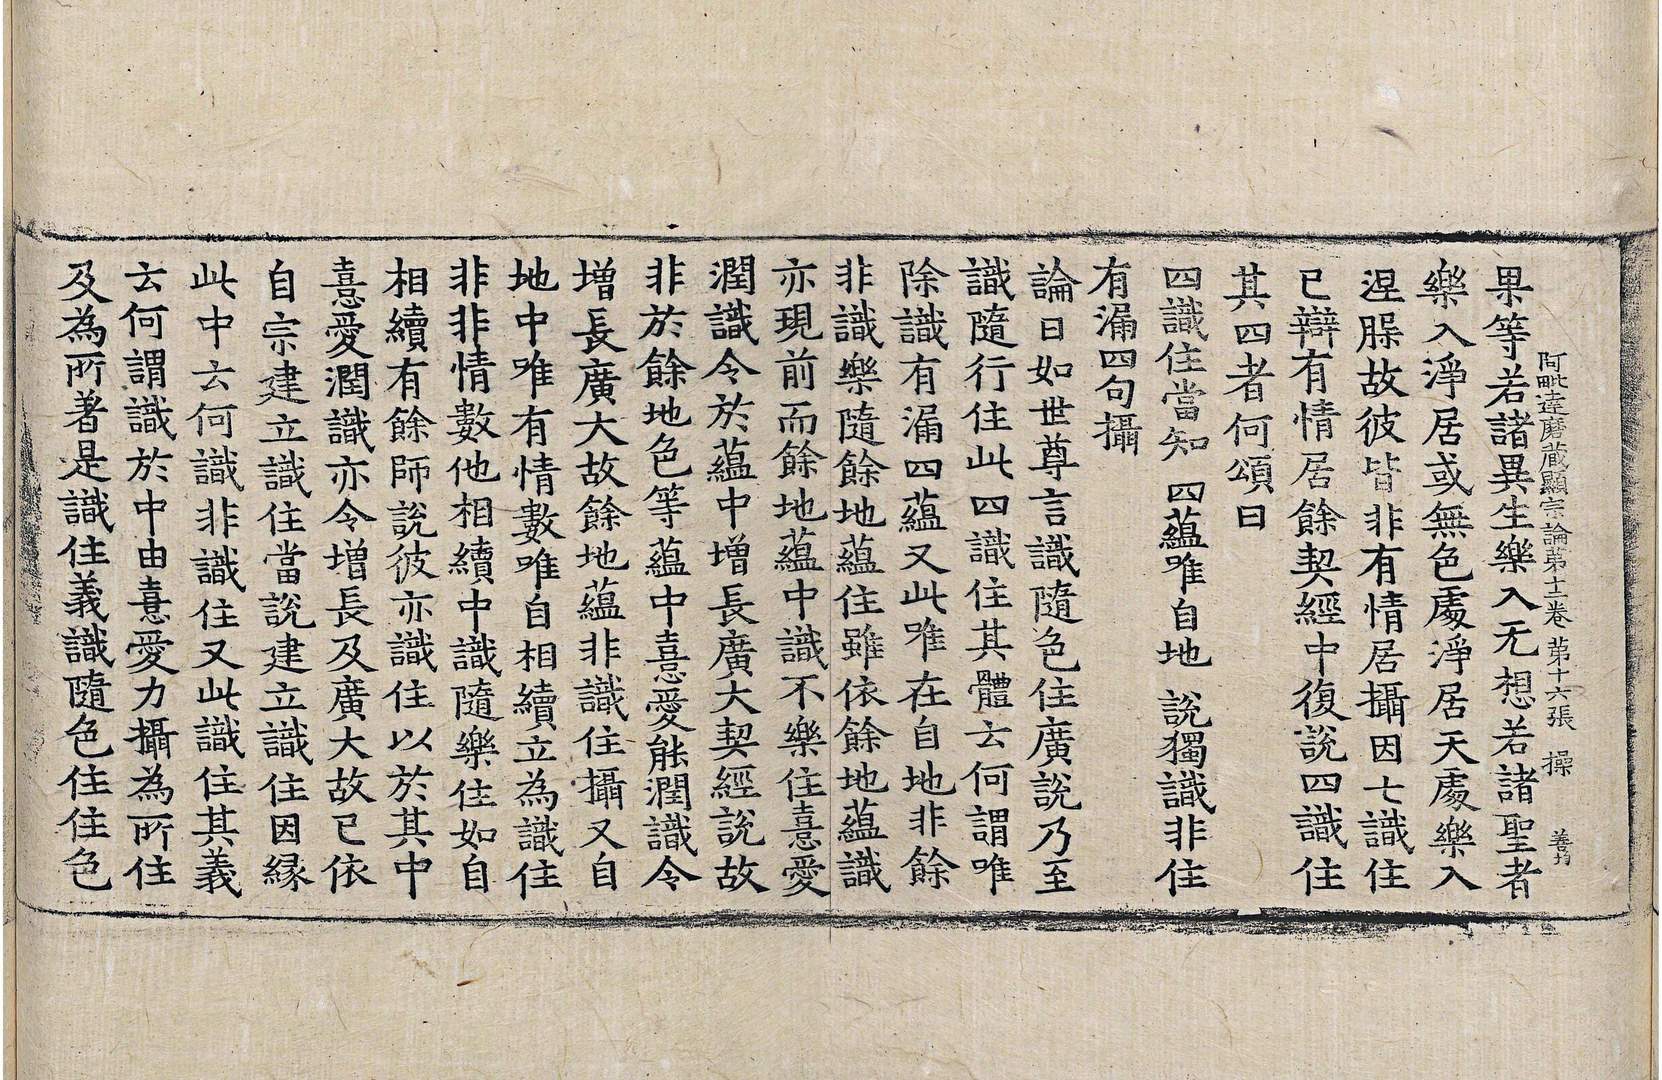 阿毗達磨藏顯宗論第十二卷 第十六張 操 善均
果等若諸異生樂入无想若諸聖者
樂入淨居或無色處淨居天處樂入
涅槃故彼皆非有情居攝因七識住
已辯有情居餘契經中復說四識住
其四者何頌曰
四識住當知 四蘊唯自地 說獨識非住
有漏四句攝
論曰如世尊言識隨色住廣說乃至
識隨行住此四識住其體云何謂唯
除識有漏四蘊又此唯在自地非餘
非識樂隨餘地蘊住雖依餘地蘊識
亦現前而餘地蘊中識不樂住憙愛
潤識令於蘊中增長廣大契經說故
非於餘地色等蘊中憙愛能潤識令
增長廣大故餘地蘊非識住攝又自
地中唯有情數唯自相續立為識住
非非情數他相續中識隨樂住如自
相續有餘師說彼亦識住以於其中
憙愛潤識亦令增長及廣大故已依
自宗建立識住當說建立識住因緣
此中云何識非識住又此識住其義
云何謂識於中由憙愛力攝為所住
及為所著是識住義識隨色住住色